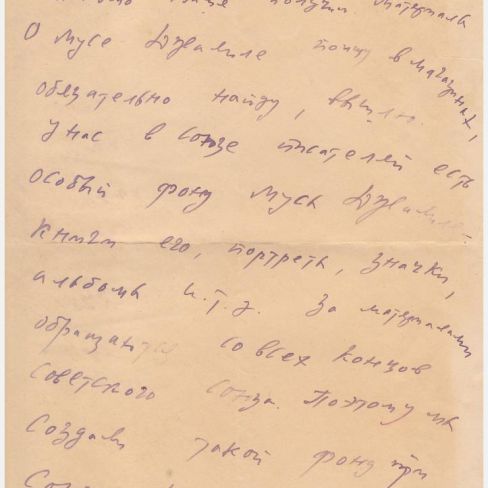 получил. Материалы
О Мусе Джалиле поищу в магазинах,
обязательно найду, вышлю.
У нас в Союзе писателей есть
особый фонд Мусы Джалиля-
книги его, портреты, значки,
альбомы и.т.д. За материалами
обращаются со всех концов
Советского Союза. Поэтому мы
создали такой фонд при